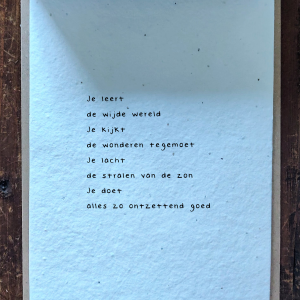 Je leert
de wijde wereld
Je kijkt
de wonderen tegemoet
Je lacht
de stralen van de zon
Je doet
alles zo ontzettend goed